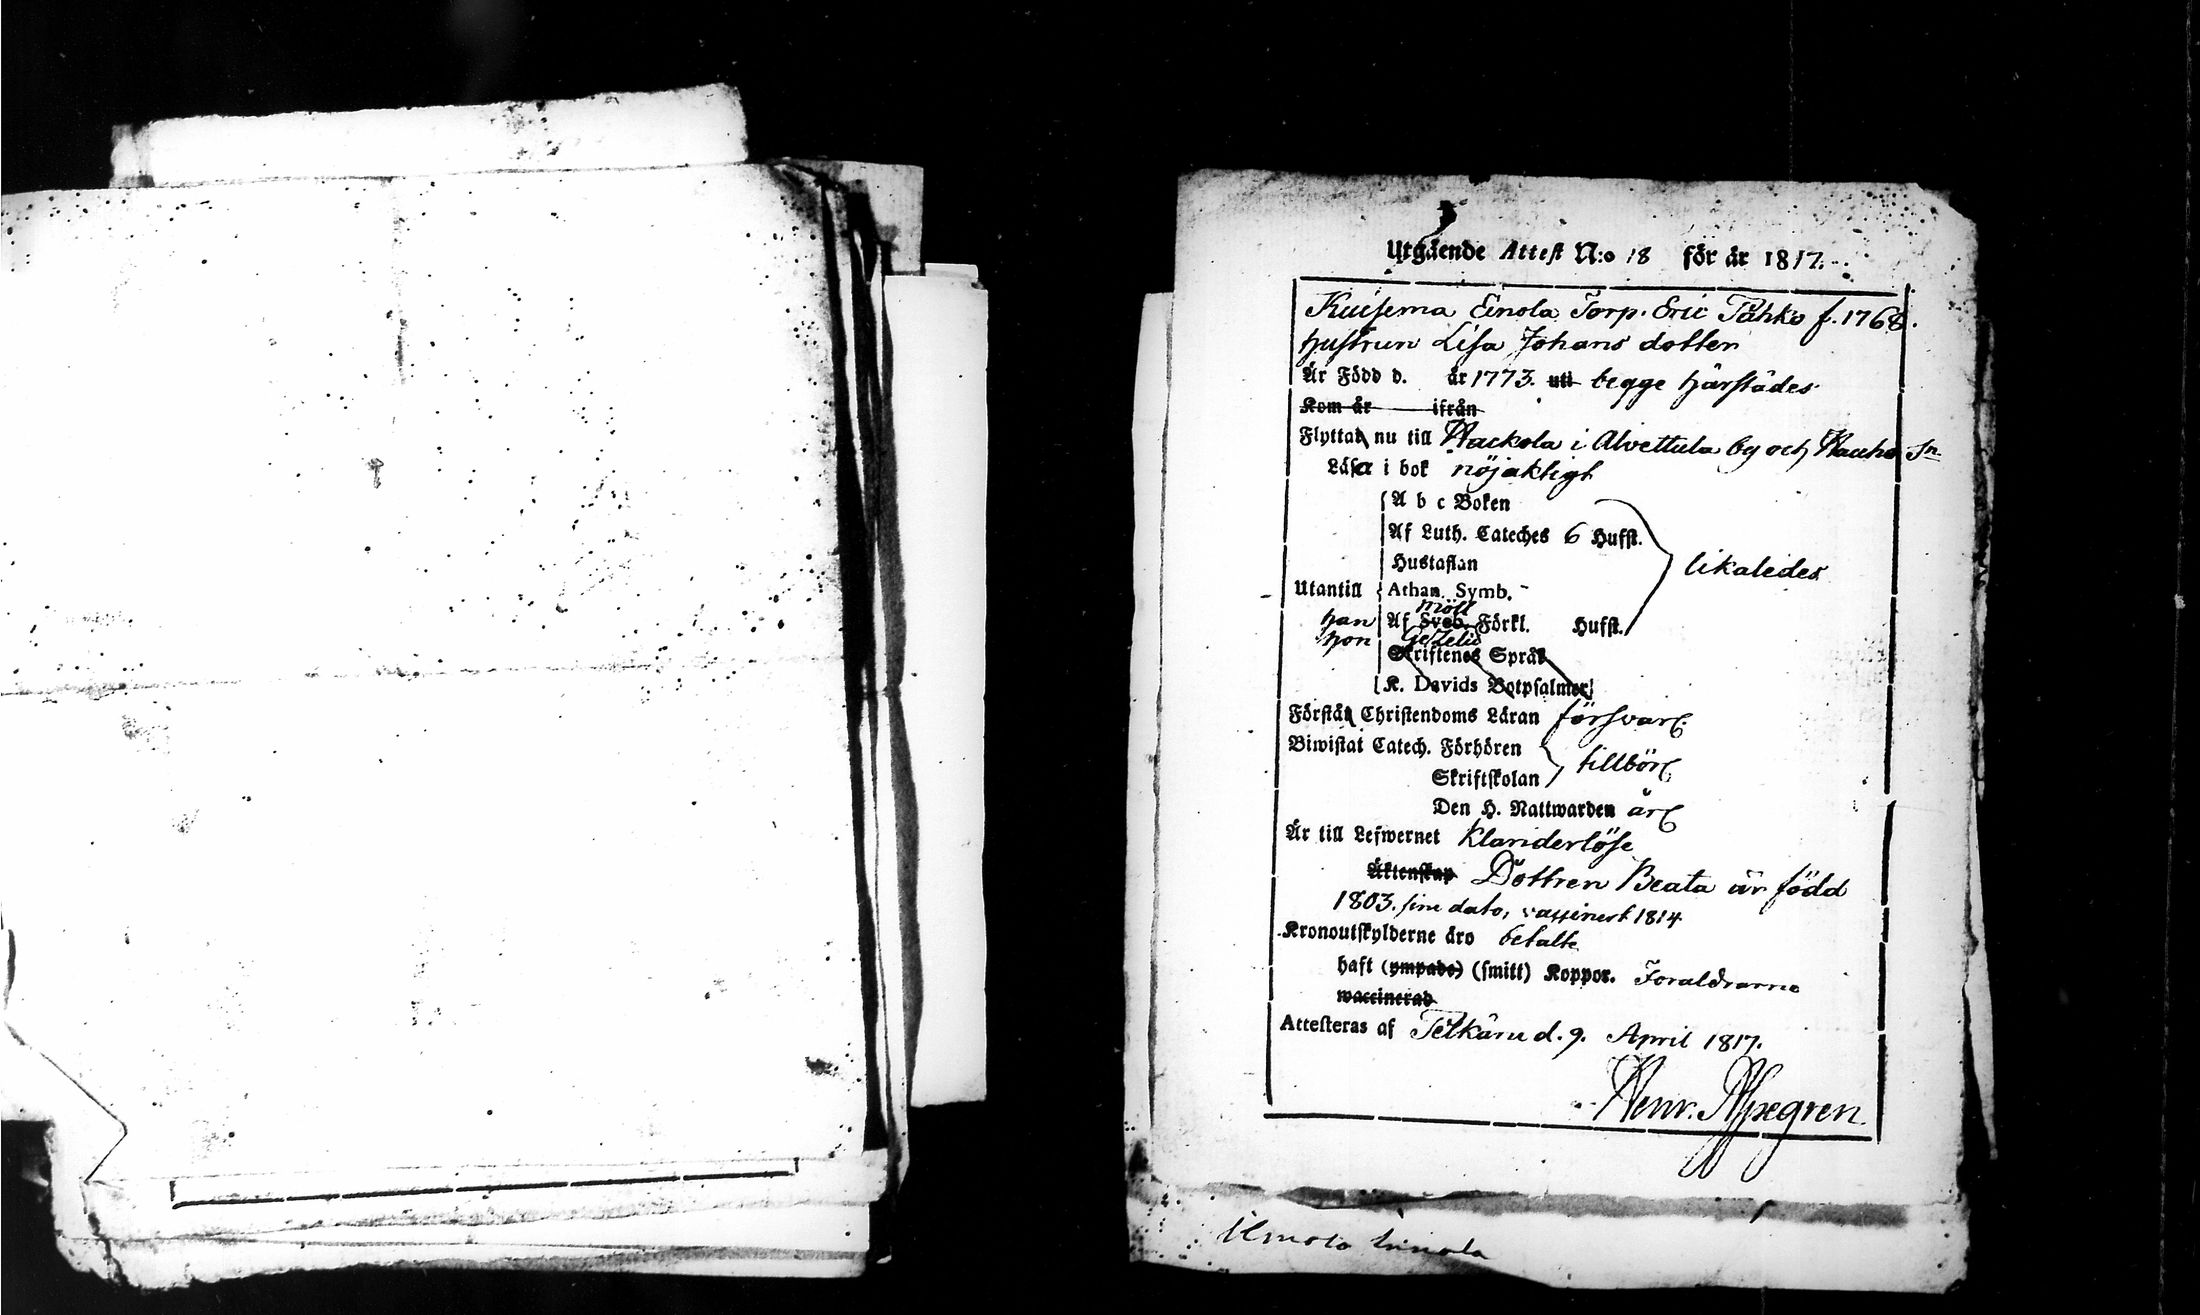 Utgående Attest N:o 18 för år 1817.
Kuisema Einola Torp. Eric Påhko f. 1768.
hustrun Lisa Johans dotter
Är Född d. år 1773. uti begge härstädes
Kom år ifrån
Flyttat nu till Hackola i Alvettula by och Hauho Sn
Läsa i bok nöjaktigt
A b c Boken
Af Luth. Cateches 6 Hufst.
Hustaflan
likaledes
Utantill Athan. Symb.
möll
han Af Sveb. Förkl. Hufst.
hon Gezelii
Skriftenes Språk
K. Davids Botpsalmer
Förstår Christendoms Läran försvarl.
Biwistat Catech. Förhören
tillbörl.
Skriftskolan
Den H. Nattwarden årl.
Är till Lefwernet klanderlöse
Äktenskap Dottren Beata är född
1803. sine dato, vaccinert 1814
Kronoutskylderne äro betalte
haft (ympade) (smitt) Koppor. Föraldrarne
waccinerad
Attesteras af Pelkäne d. 9. April 1817.
Henr.